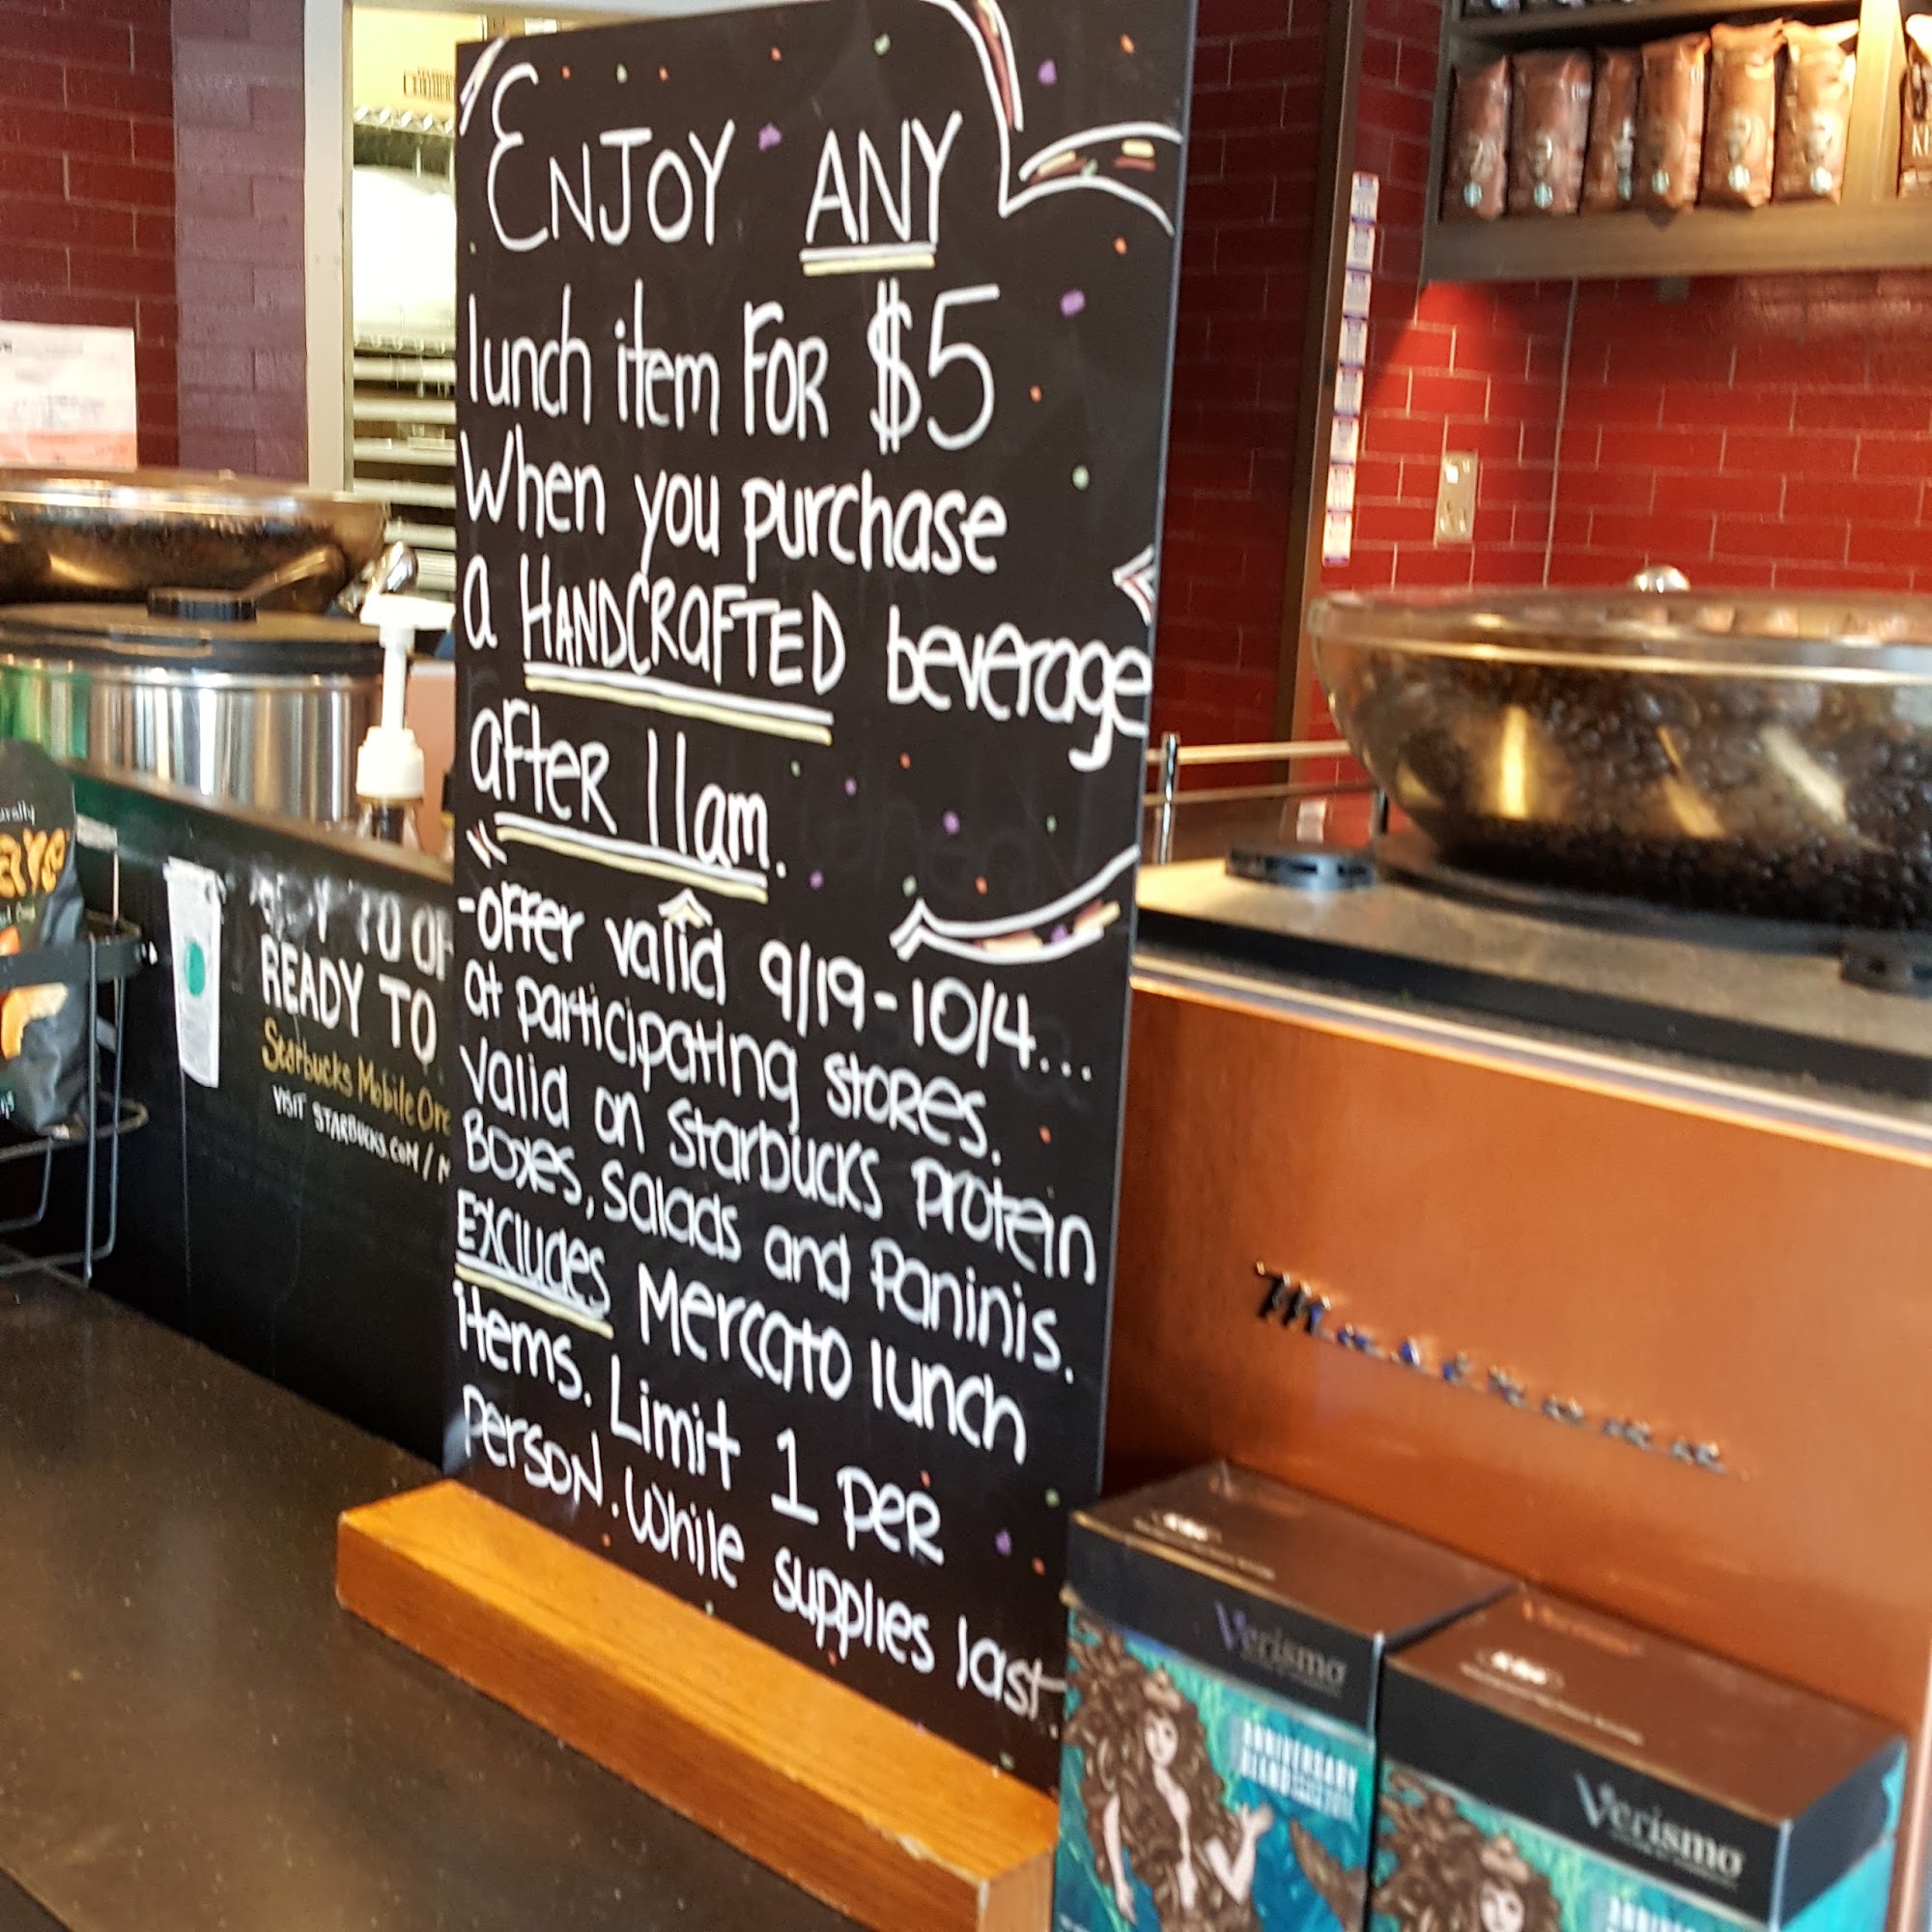 ENJOY ANY
lunch item FOR $5
When you purchase
a HANDCRAFTED beverage
after 11am.
-offer valid 9/19-10/4...
at participating stores.
Valid on Starbucks protein
Boxes, salads and Paninis.
Excludes Mercato lunch
items. Limit 1 per
person. While supplies last.
TO
READY TO
Starbucks Mobile
VISIT STARBUCKS.COM/
Mastrena
Verismo
ANNIVERSARY
BLEND
Verismo